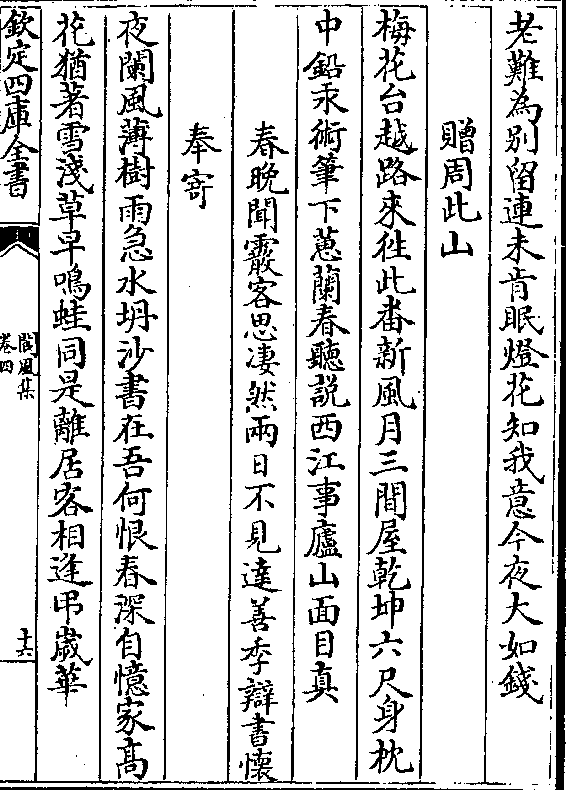 老難為別留連未肯眠燈花知我意今夜大如錢
贈周此山
梅花台越路來徃此畨新風月三間屋乾坤六尺身枕
中鉛汞術筆下蕙蘭春聽説西江事廬山面目真
春晩聞霰客思凄然兩日不見達善季辯書懷
奉寄
夜闌風薄樹雨急水坍沙書在吾何恨春深自憶家髙
花猶著雪淺草早鳴蛙同是離居客相逢弔歲華
欽定四庫全書
閬風集
卷四
十六